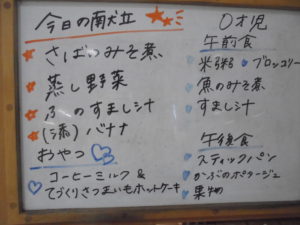 今日の献立
さばのみそ煮
蒸し野菜
ふのすまし汁
(添) バナナ
おやつ
コーヒーミルク&
てづくりさつまいもホットケーキ
0才児
午前食
米粥 ブロッコリー
魚のみそ煮
すまし汁
午後食
スティックパン
かぶのポタージュ
果物